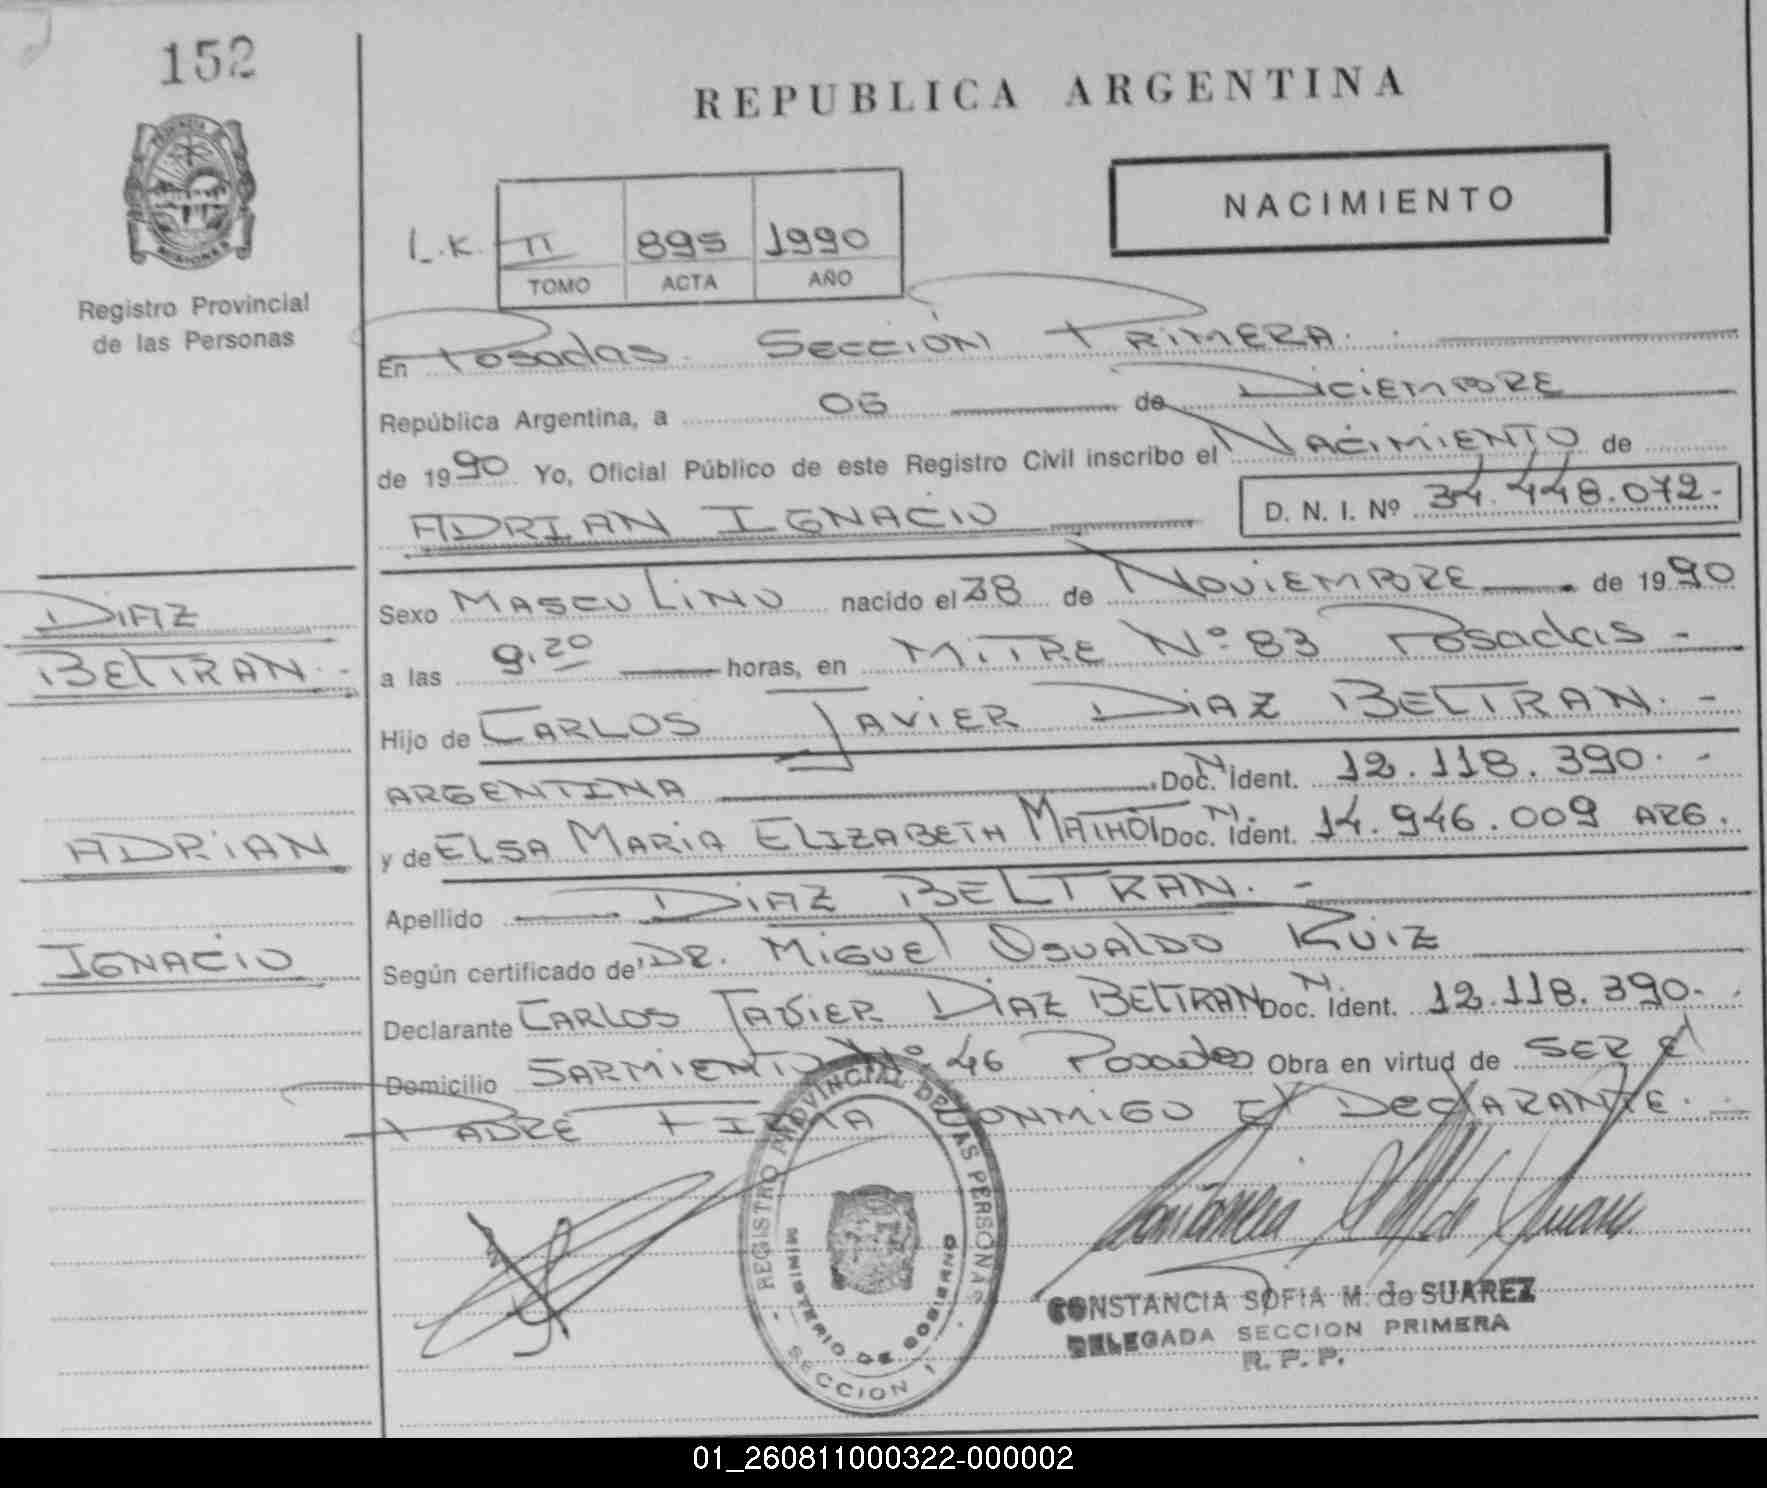 152
REPUBLICA ARGENTINA
NACIMIENTO
L.K. II 895 1990
TOMO ACTA AÑO
Registro Provincial
de las Personas
En Posadas. Sección Primera.
República Argentina, a 06 de Diciembre
de 1990 Yo, Oficial Público de este Registro Civil inscribo el Nacimiento de
ADRIAN IGNACIO D. N. I. Nº 34.448.072.-
DIAZ
BELTRAN.-
ADRIAN
IGNACIO
Sexo MASCULINO nacido el 28 de Noviembre de 1990
a las 9.20 horas, en MITRE Nº 83 Posadas -
Hijo de CARLOS JAVIER DIAZ BELTRAN.-
ARGENTINA Doc. N. Ident. 12.118.390.-
y de ELSA MARIA ELIZABETH Doc. N. Ident. 14.946.009 ARG.
Apellido DIAZ BELTRAN.-
Según certificado de DR. MIGUEL OSVALDO RUIZ
Declarante CARLOS JAVIER DIAZ BELTRAN Doc. N. Ident. 12.118.390.-
Domicilio SARMIENTO Nº 46 Posadas Obra en virtud de SER El
PADRE FIRMA CONMIGO El DEClARANTE.
REGISTRO PROVINCIAL DE LAS PERSONAS
MINISTERIO DE GOBIERNO
SECCION 1
CONSTANCIA SOFIA M. de SUAREZ
DELEGADA SECCION PRIMERA
R. P. P.
01_260811000322-000002